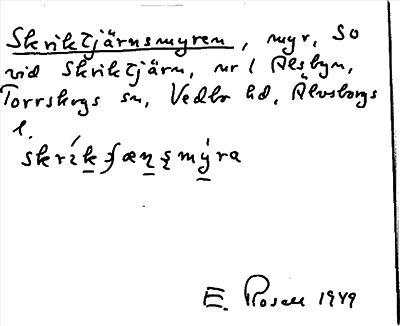 Skriktjärnsmyren, myr, SO
vid Skriktjärn, nr 1 Ålsbyn,
Torrskogs sn, Vedbo hd, Älvsborgs
l.
skrík ʃæṇṣmýra
E. Rosell 1949